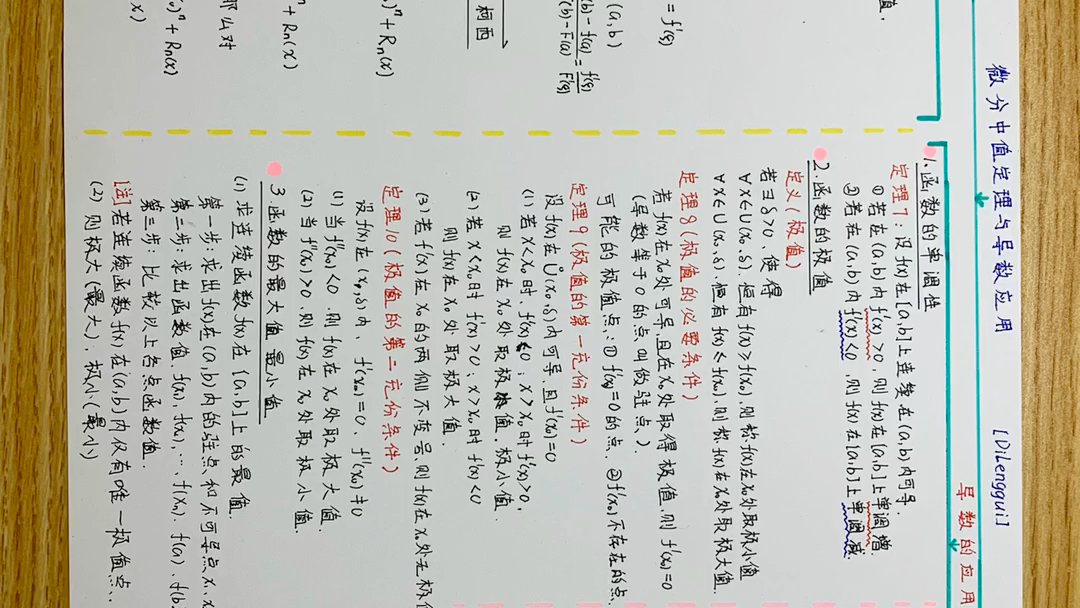 微分中值定理与导数应用
[DiLenggui]
导数的应用
值.
= f'(ξ)
(a,b)
(b)-f(a) = f'(ξ)
(b)-F(a) F'(ξ)
柯西
)ⁿ + Rn(x)
ⁿ + Rn(x)
那么对
)ⁿ + Rn(x)
x)
1. 函数的单调性
定理7: 设f(x)在[a,b]上连续在(a,b)内可导.
①若在(a,b)内f'(x)>0, 则f(x)在[a,b]上单调增.
②若在(a,b)内f'(x)<0, 则f(x)在[a,b]上单调减.
2. 函数的极值
定义(极值)
若∃δ>0, 使得
∀x∈U(x₀,δ).恒有f(x)>f(x₀),则称f(x)在x₀处取极小值
∀x∈U(x₀,δ).恒有f(x)<f(x₀),则称f(x)在x₀处取极大值.
定理8(极值的必要条件)
若f(x)在x₀处可导,且在x₀处取得极值,则f'(x₀)=0
(导数等于0的点叫做驻点.)
可能的极值点:①f'(x₀)=0的点. ②f'(x₀)不存在的点.
定理9(极值的第一充份条件)
设f(x)在U(x₀,δ)内可导.且f'(x₀)=0
(1) 若x<x₀时f'(x)<0; x>x₀时f'(x)>0,
则f(x)在x₀处取极值.极小值.
(2) 若x<x₀时f'(x)>0; x>x₀时f'(x)<0
则f(x)在x₀处取极大值.
(3) 若f'(x)在x₀的两侧不变号.则f(x)在x₀处无极
定理10(极值的第二充份条件)
设f(x)在(x₀,δ)内, f'(x₀)=0. f''(x₀)≠0
(1) 当f''(x₀)<0. 则f(x)在x₀处取极大值.
(2) 当f''(x₀)>0, 则f(x)在x₀处取极小值.
3. 函数的最大值 最小值
(1) 求连续函数f(x)在[a,b]上的最值.
第一步:求出f(x)在(a,b)内的驻点和不可导点x₁、x
第二步:求出函数值.f(x₁), f(x₂), … f(xn). f(a). f(b
第三步:比较以上各点函数值.
[注]若连续函数f(x)在(a,b)内仅有唯一极值点.
(2) 则极大(最大), 极小(最小)